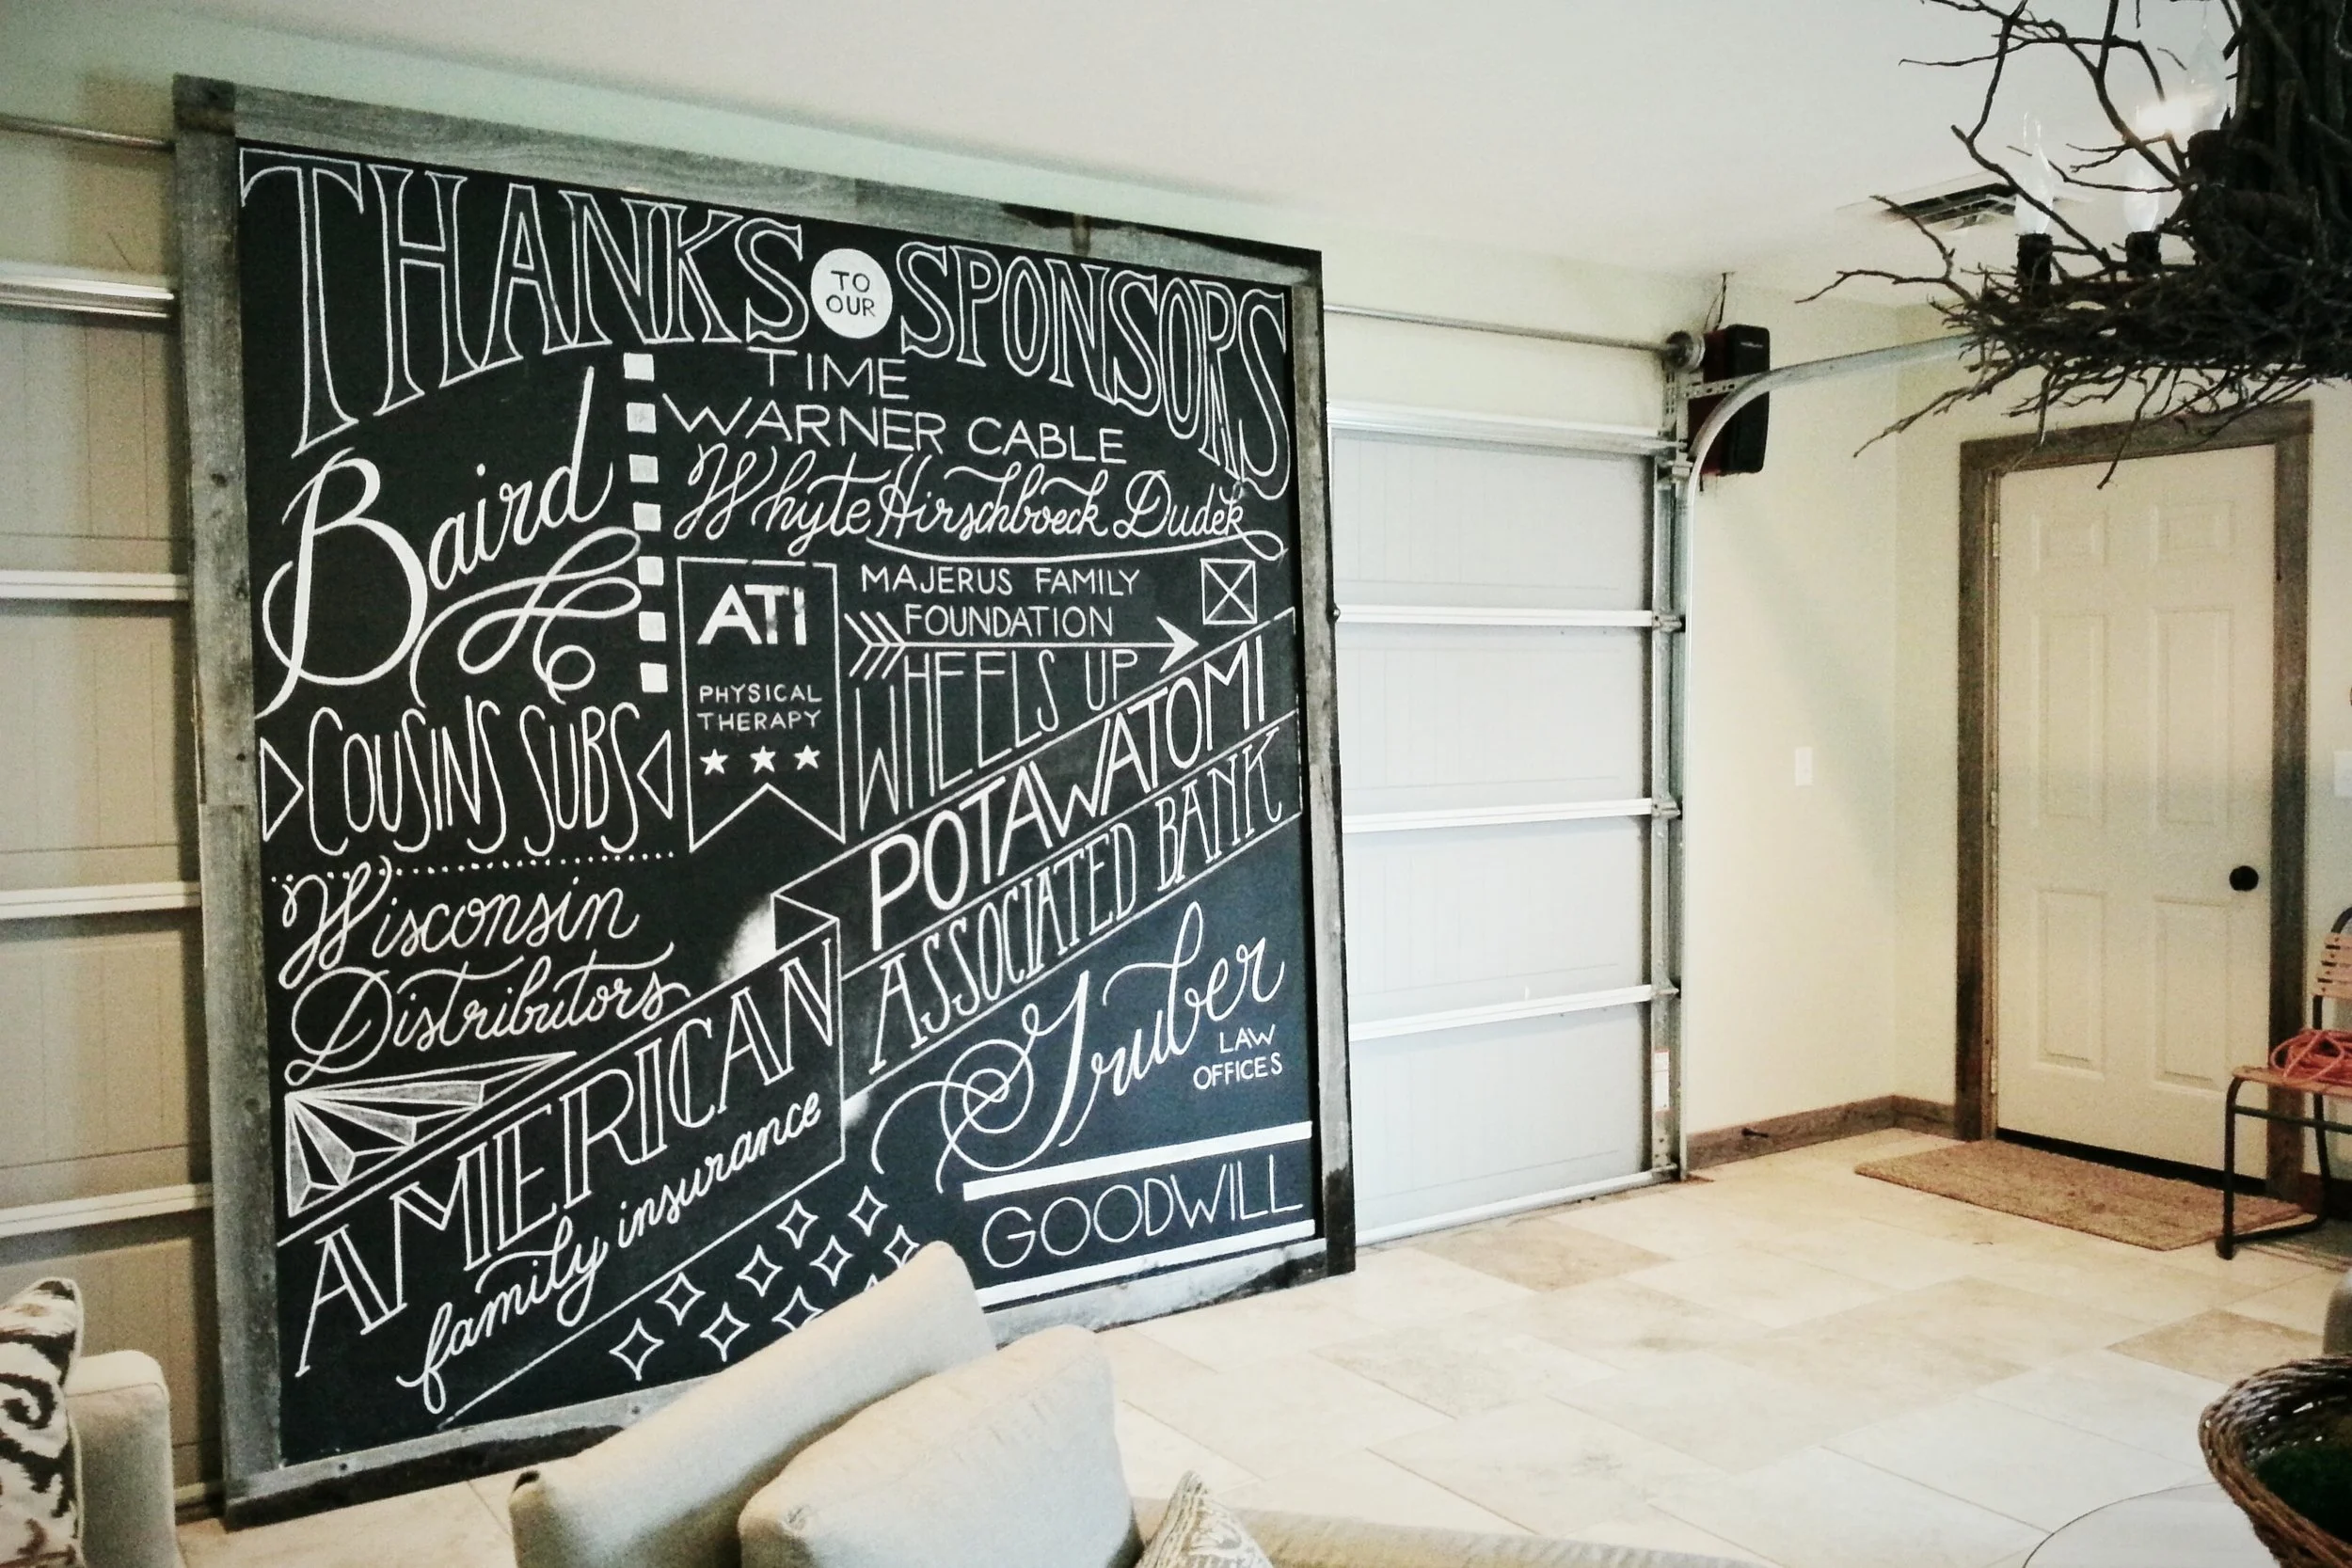 THANKS TO OUR SPONSORS
TIME
WARNER CABLE
Baird
Whyte Hirschboeck Dudek
ATI
PHYSICAL
THERAPY
MAJERUS FAMILY
FOUNDATION
WHEELS UP
COUSINS SUBS
POTAWATOMI
ASSOCIATED BANK
Wisconsin
Distributors
AMERICAN
family insurance
Gruber
LAW
OFFICES
GOODWILL